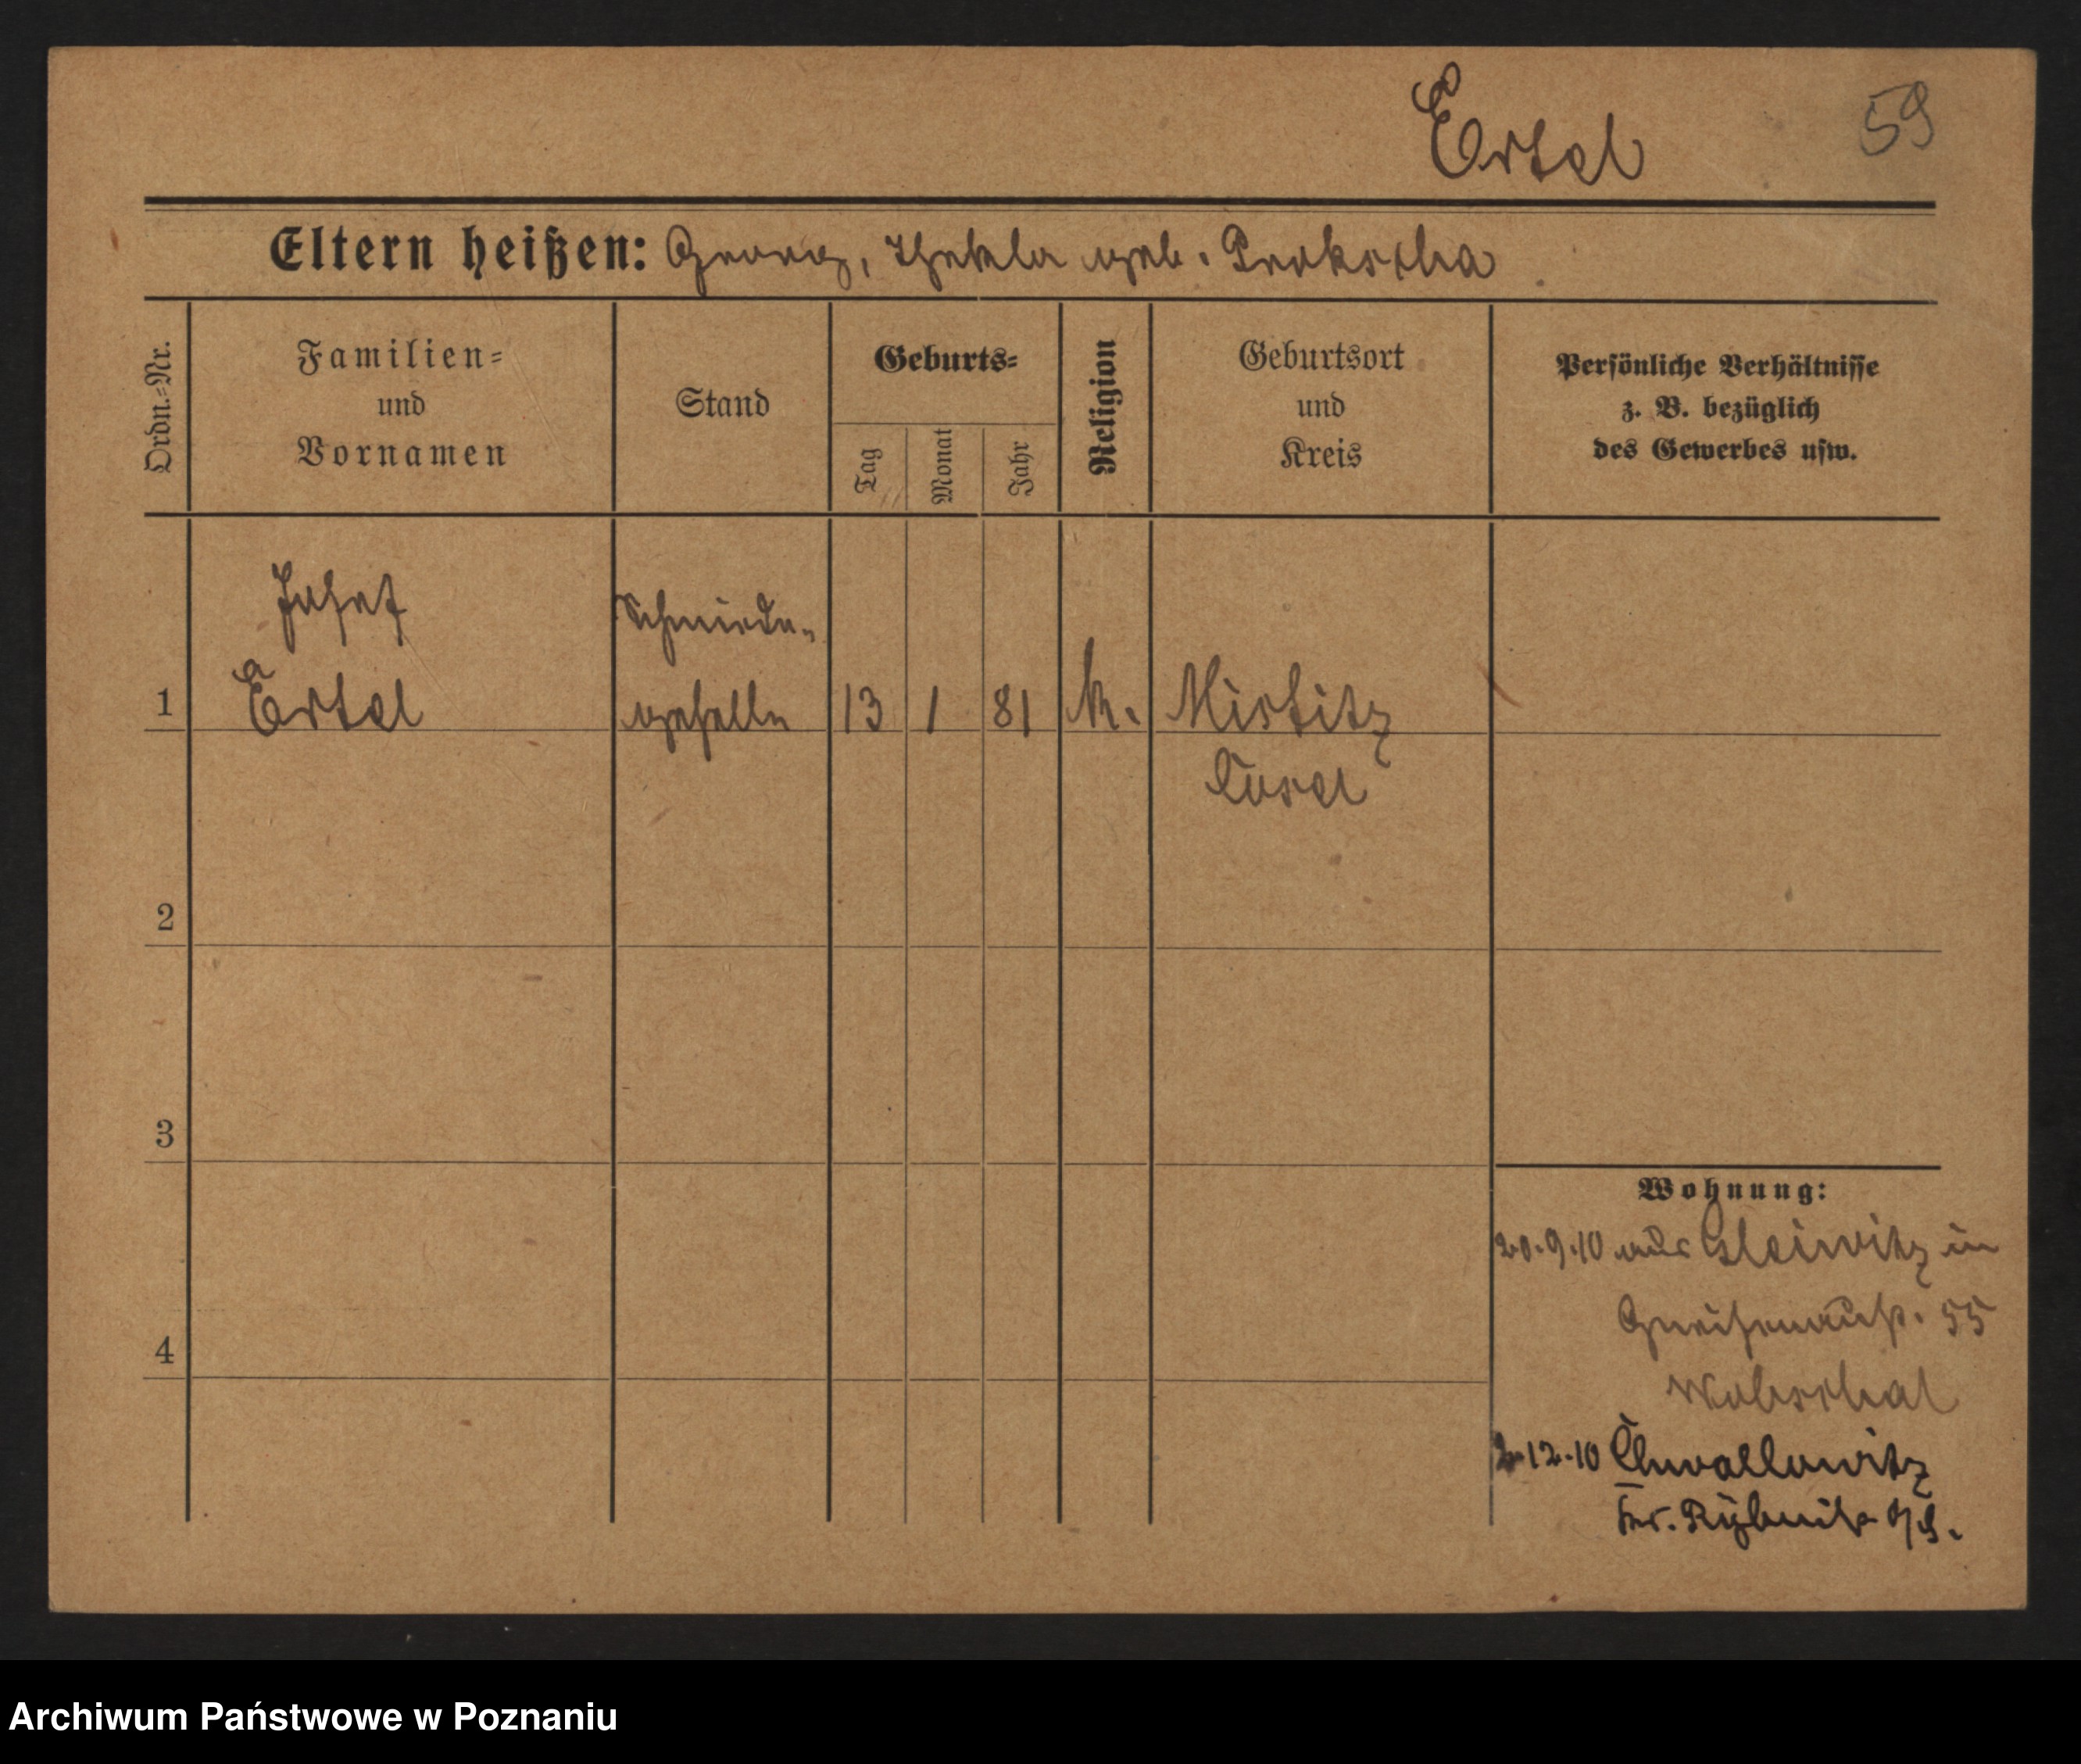 Ertel
59
Eltern heißen: Georg, Thekla geb. Prokscha
Ordn.=Nr.
Familien=
und
Vornamen
Stand
Geburts=
Tag
Monat
Jahr
Religion
Geburtsort
und
Kreis
Persönliche Verhältnisse
z. B. bezüglich
des Gewerbes usw.
Josef
Schmiede-
1 Ertel geselle 13 1 81 k. Mistitz
Cosel
2
3
4
Wohnung:
20.9.10 aus Gleiwitz in
Gneisenaustr. 55
2.12.10 Chwallowitz
Kr. Rybnik O/S.
Archiwum Państwowe w Poznaniu